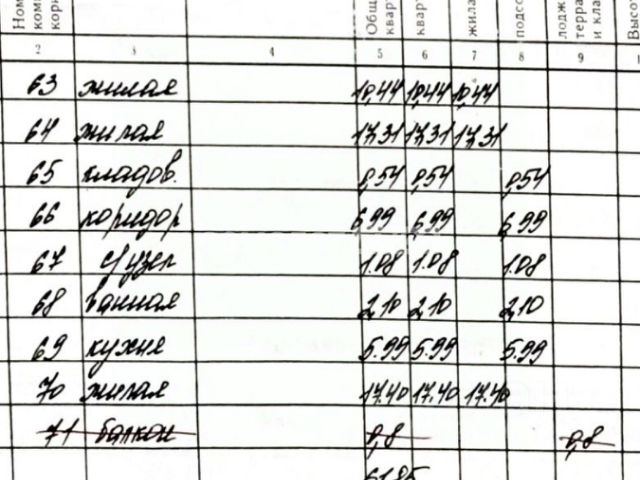 Ном
комн
корн
Общ
кварт
кварт
жила
подсо
лодж
терра
и кла
Высот
2 3 4 5 6 7 8 9
63 жилая 10,44 10,44 10,44
64 жилая 17,31 17,31 17,31
65 кладов. 0,54 0,54 0,54
66 коридор 6,99 6,99 6,99
67 с/узел 1.08 1.08 1.08
68 ванная 2,10 2,10 2,10
69 кухня 5.99 5.99 5.99
70 жилая 17.40 17.40 17.40
71 балкон 0,8 0,8
61.85